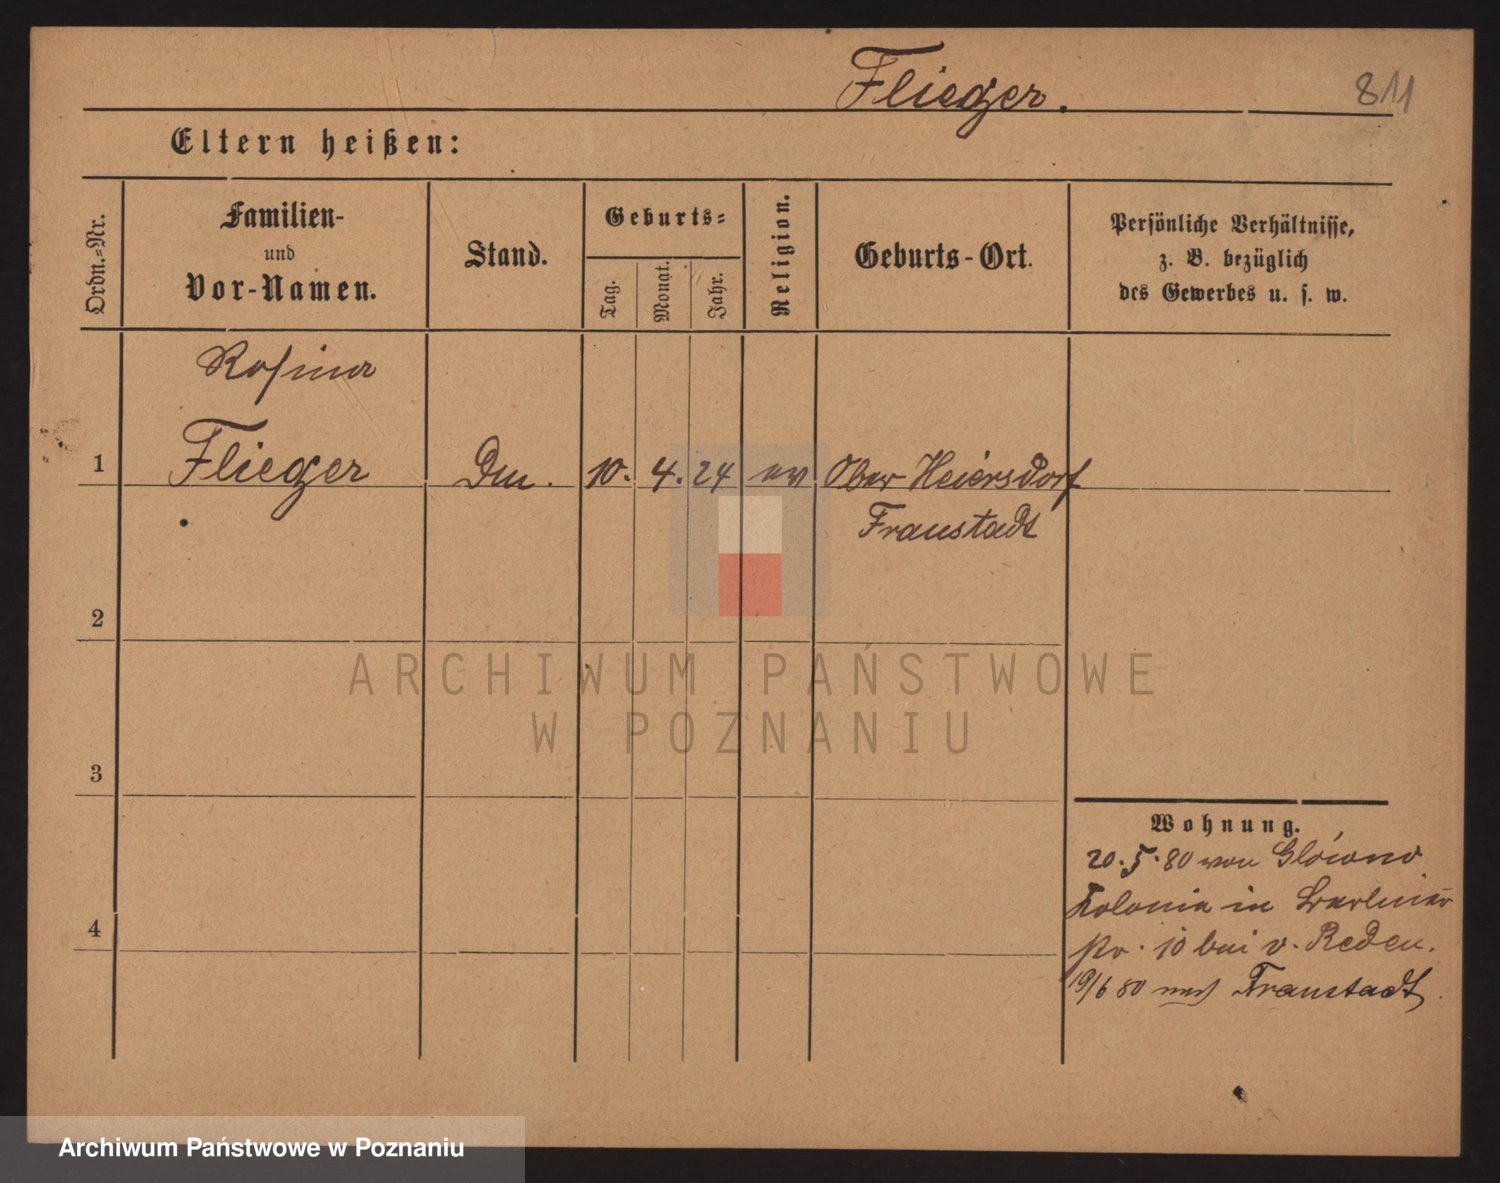 Flieger.
811
Eltern heißen:
Ordn.-Nr.
Familien-
und
Vor-Namen.
Stand.
Geburts-
Tag.
Monat.
Jahr.
Religion.
Geburts-Ort.
Persönliche Verhältnisse,
z. B. bezüglich
des Gewerbes u. s. w.
Rosina
1 Flieger 10. 4. 24 ev Ober Heiersdorf
Fraustadt
2
3
4
Wohnung.
20. 5. 80 von Glówno
Kolonie in Berliner
10 bei v. Reden.
19/6 80 nach Fraustadt
ARCHIWUM PAŃSTWOWE
W POZNANIU
Archiwum Państwowe w Poznaniu